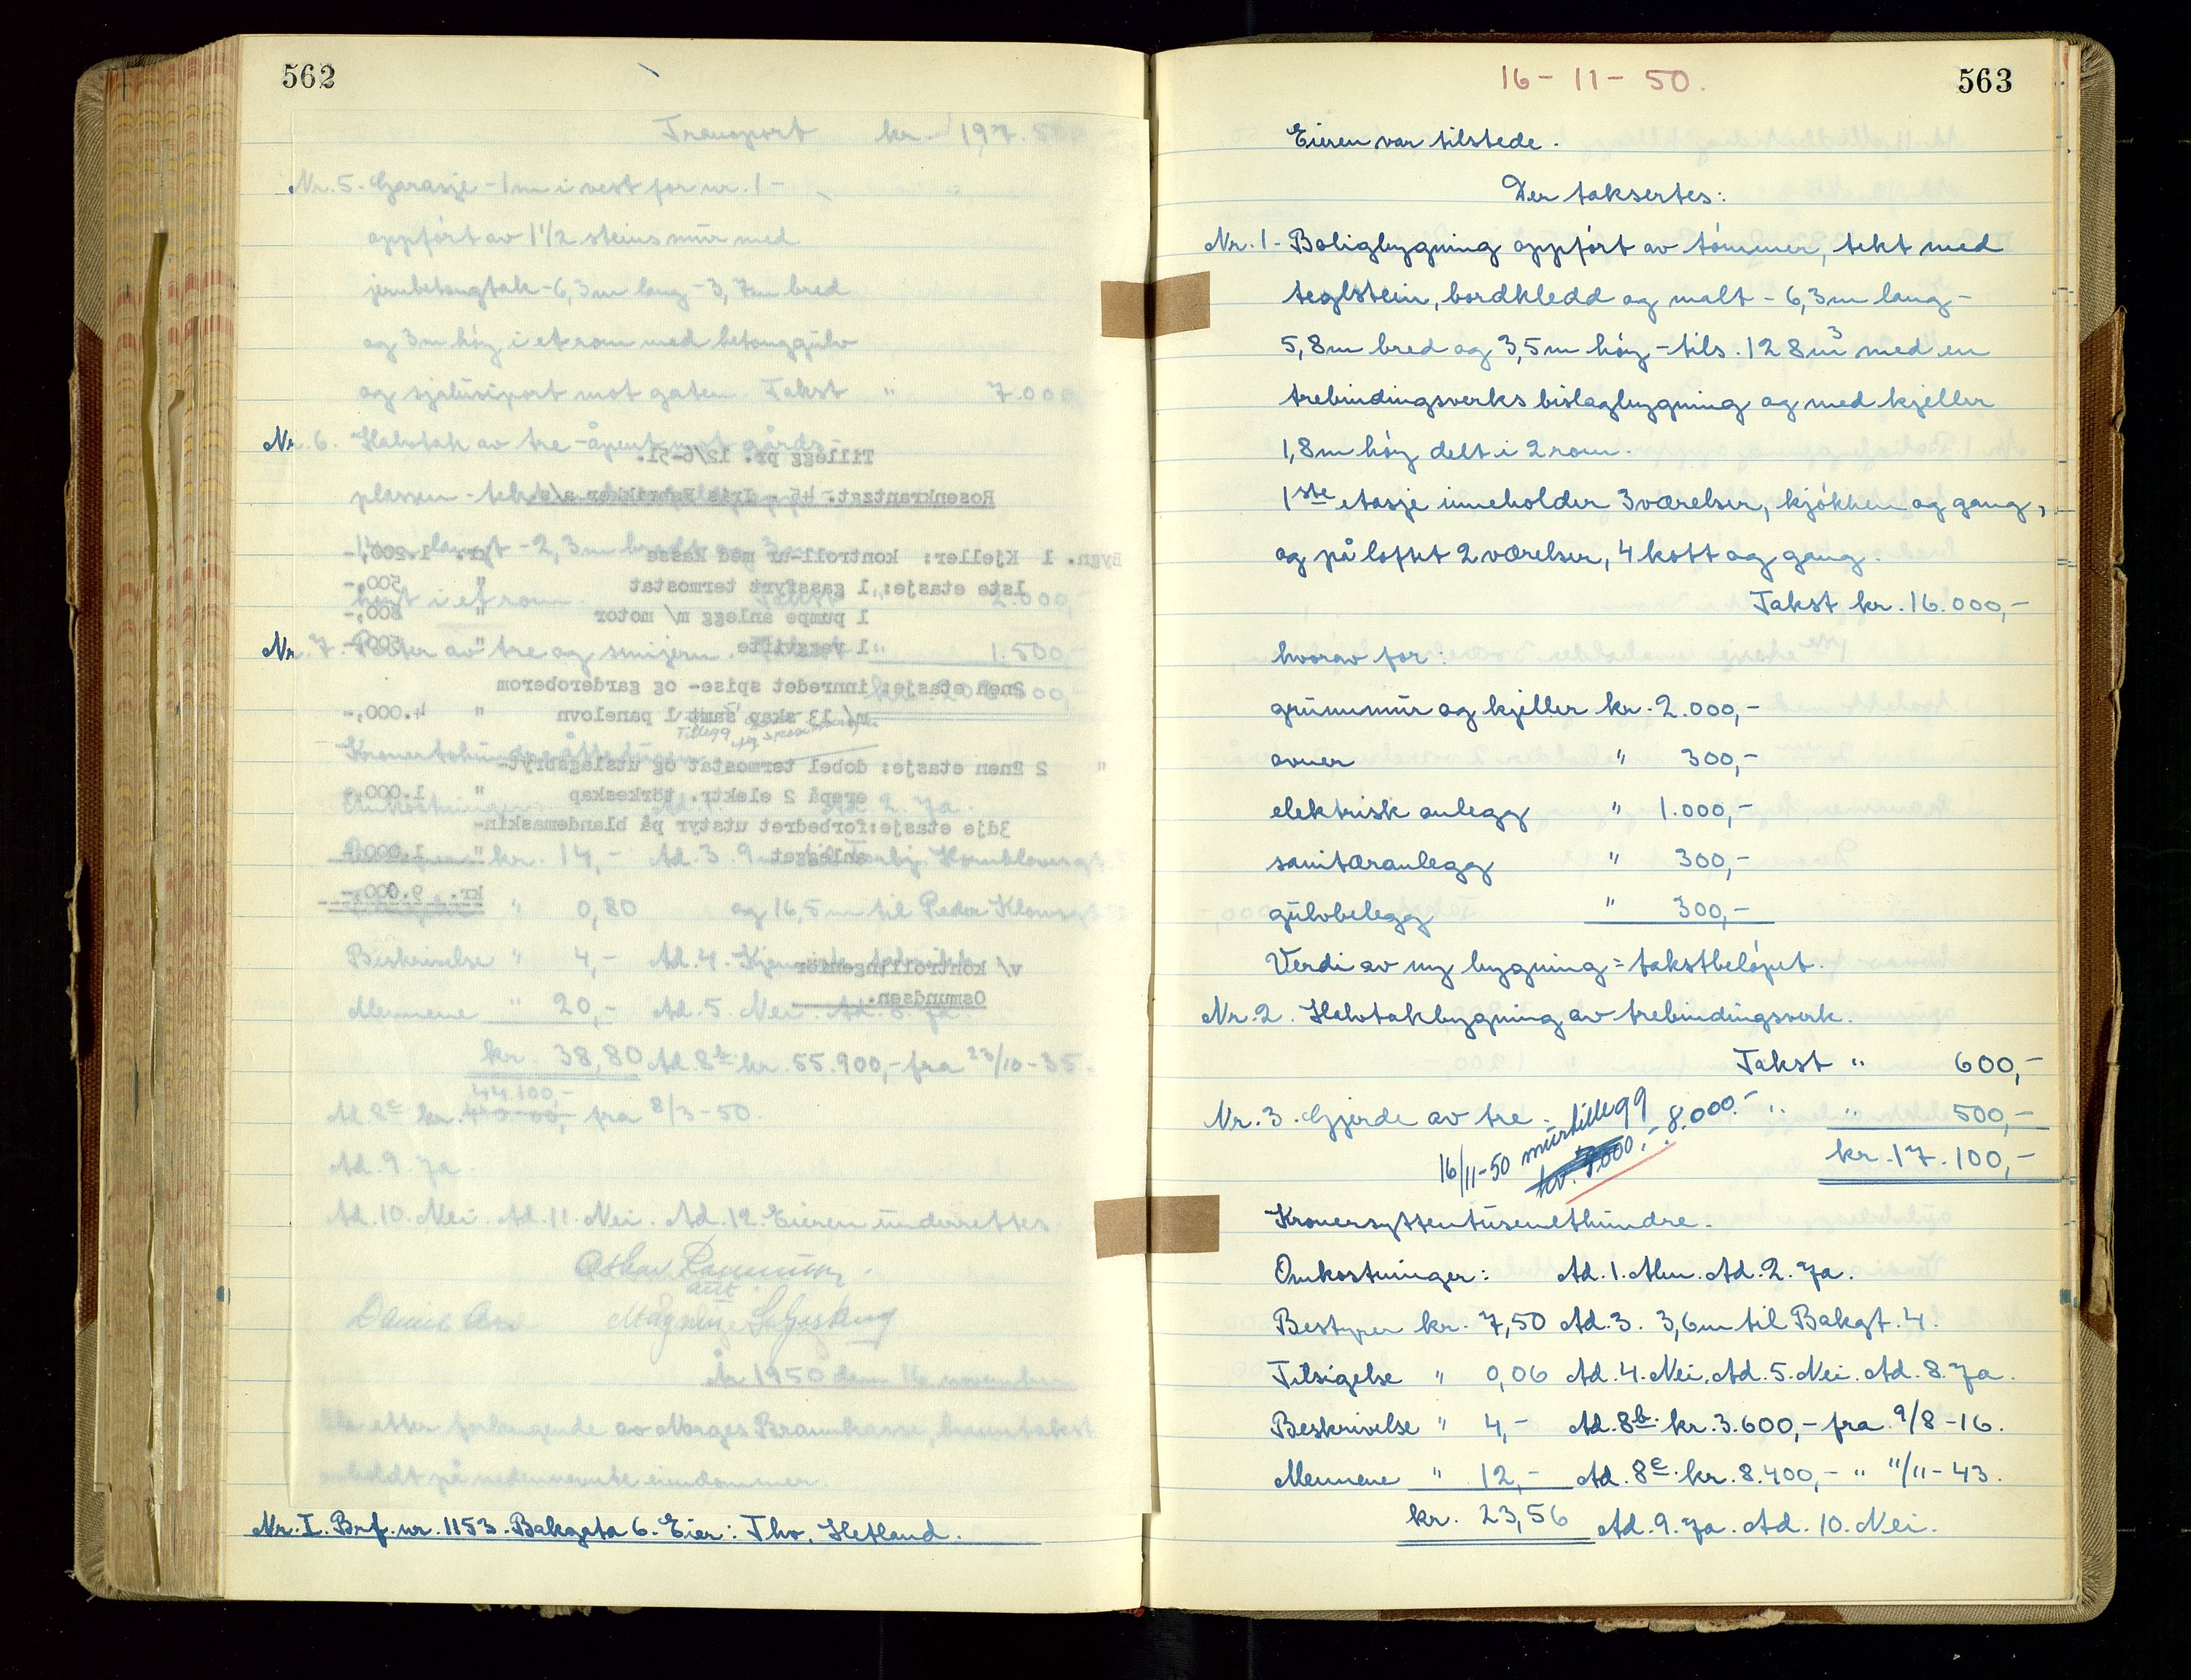 562
Transport kr. 197.
Nr. 5. Garasje - 1m i vest for nr. 1 -
oppført av 1 1/2 steins mur med
jernbetongtak - 6,3m lang - 3,7m bred
og 3m høy i et rom med betonggulv
og sjalusiport mot gaten. Takst " 7.000
Nr. 6. Halvtak av tre - åpent mot gårds-
plassen -
langt - 2,3m bredt og 3m
høyt i et rom. Takst 2.000,-
Nr. 7. Porter av tre og smijern. " 1.500,-
Tillegg pr. 12/6-51.
Rosenkrantzgt. 45 - Iris Fabrikker a/s.
Bygn. 1 Kjeller: kontroll-ur med kasse kr. 1.200,-
1ste etasje: 1 gassfyrt termostat " 500,-
1 pumpe anlegg m/ motor " 800,-
1 veggvifte " 500,-
2nen etasje: innredet spise- og garderoberom
m/ 13 skap samt 1 panelovn " 4.000,-
" 2 2nen etasje: dobel termostat og utslagsbryt-
erepå 2 elektr. törkeskap " 1.000,-
3dje etasje: forbedret utstyr på blandemaskin-
anlegget " 1.000,-
kr. 9.000,-
v/ kontrollingeniør
Osmundsen.
Omkostninger: Ad. 2. Ja.
kr. 14,- Ad. 3. 9
" 0,80 og 16,5m til Peder
Beskrivelse " 4,- Ad. 4.
Mennene " 20,- Ad. 5. Nei. Ad. 8. Ja.
kr. 38,80 Ad. 8b kr. 55.900,- fra 23/10-35.
44.100,-
Ad. 8c kr. fra 8/3-50.
Ad. 9. Ja.
Ad. 10. Nei. Ad. 11. Nei. Ad. 12. Eieren underrettes.
År 1950 den 16. november
ble etter forlangende av Norges Brannkasse, branntakst
avholdt på nedennevnte eiendommer.
Nr. I. Brf. nr. 1153. Bakgata 6. Eier: Thv. Hetland.
16-11-50.
563
Eieren var tilstede.
Der taksertes:
Nr. 1 - Boligbygning oppført av tømmer, tekt med
teglstein, bordkledd og malt - 6,3m lang -
5,8m bred og 3,5m høy - tils. 128m3 med en
trebindingsverks bislagbygning og med kjeller
1,8m høy delt i 2 rom.
1ste etasje inneholder 3 værelser, kjøkken og gang,
og på loftet 2 værelser, 4 kott og gang.
Takst kr. 16.000,-
hvorav for:
grunnmur og kjeller kr. 2.000,-
ovner " 300,-
elektrisk anlegg " 1.000,-
sanitæranlegg " 300,-
gulvbelegg " 300,-
Verdi av ny bygning = takstbeløpet.
Nr. 2. Halvtakbygning av trebindingsverk.
Takst " 600,-
Nr. 3. Gjerde av tre. " " 500,-
kr. 17.100,-
16/11-50 murtillegg
kr. 7000,- 8.000.-
Kronersyttentusenethundre.
Omkostninger: Ad. 1. Alm. Ad. 2. Ja.
Bestyrer kr. 7,50 Ad. 3. 3,6m til Bakgt. 4.
Tilsigelse " 0,06 Ad. 4. Nei. Ad. 5. Nei. Ad. 8. Ja.
Beskrivelse " 4,- Ad. 8b. kr. 3.600,- fra 9/8-16.
Mennene " 12,- Ad. 8c. kr. 8.400,- " 11/11-43.
kr. 23,56 Ad. 9. Ja. Ad. 10. Nei.